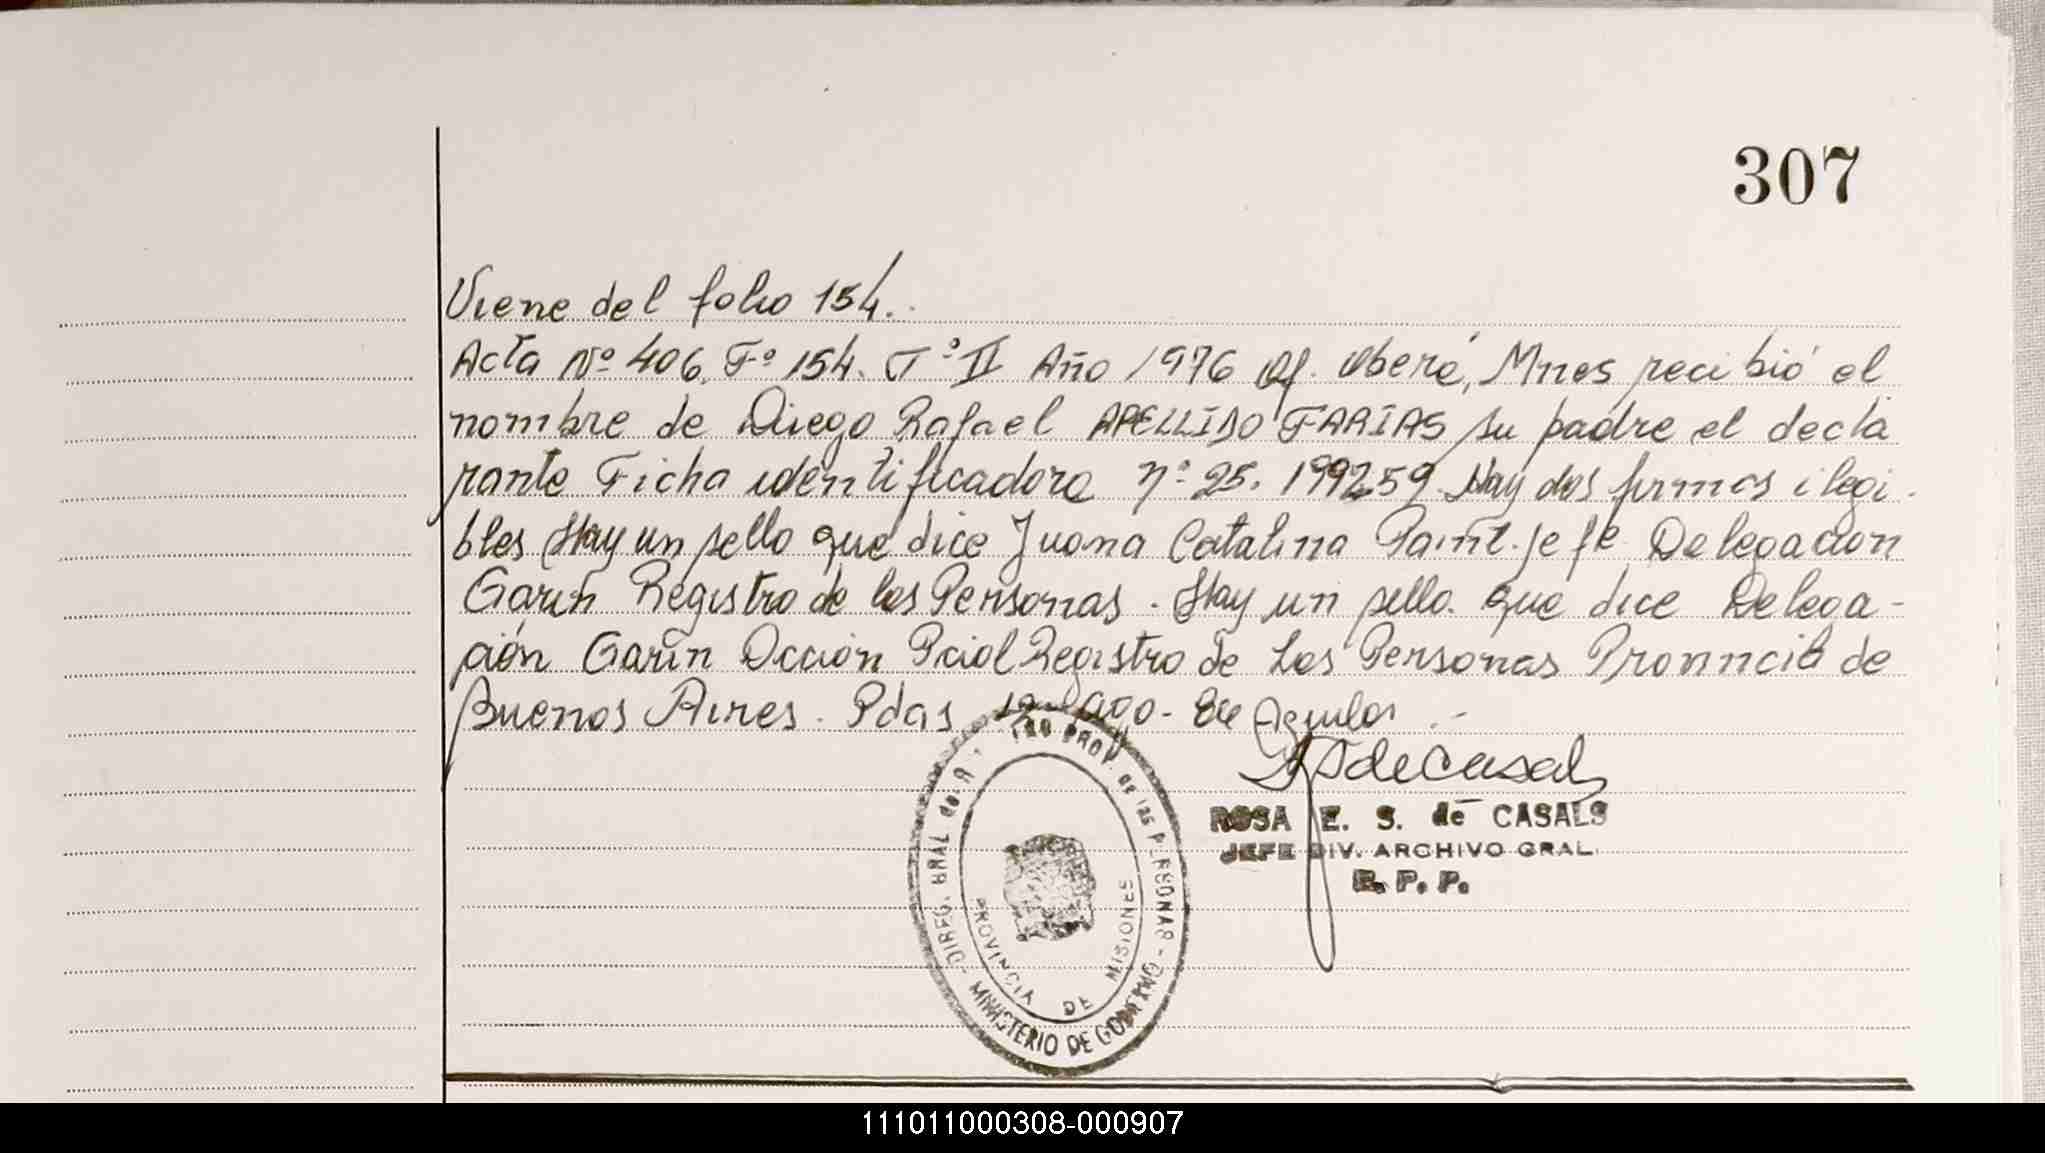 307
Viene del folio 154.
Acta Nº 406. Fº 154. Tº II Año 1976 Of. Oberá, Mnes recibió el
nombre de Diego Rafael APELLIDO FARIAS su padre el decla
rante Ficha identificadora nº 25.199259. Hay dos firmas ilegi-
bles Hay un sello que dice Juana Catalina Jefe Delegación
Garín Registro de las Personas. Hay un sello que dice Delega-
ción Garín Dcción Pcial Registro de Las Personas Provincia de
Buenos Aires. Pdas 84 Aguilar.-
ROSA E. S. de CASALS
JEFE DIV. ARCHIVO GRAL.
R. P. P.
DIREG. GRAL del PROV. de las PERSONAS - MINISTERIO DE GOBIERNO -
PROVINCIA DE MISIONES
111011000308-000907